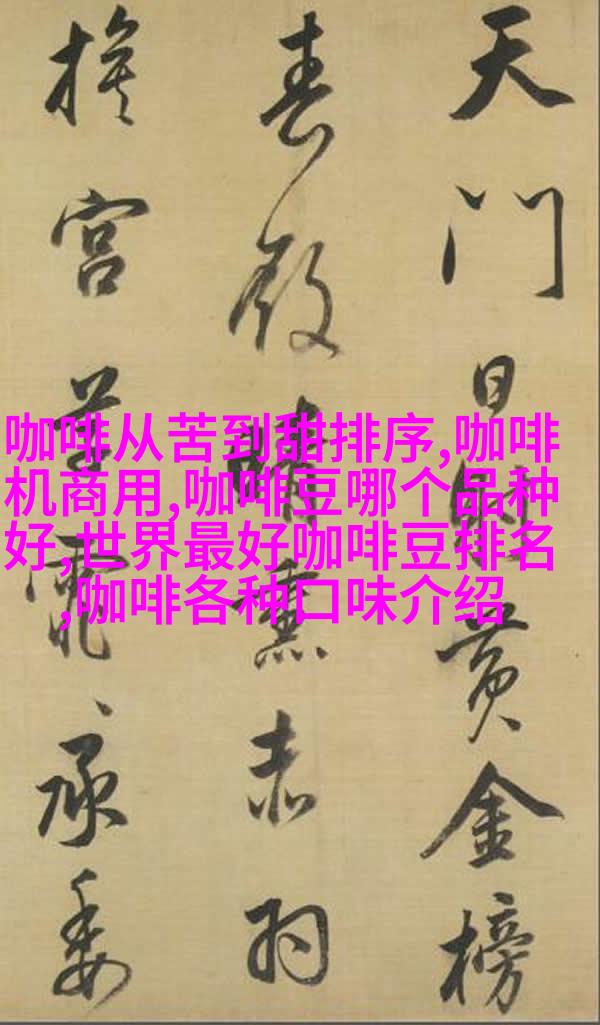 咖啡从苦到甜排序,咖啡
机商用,咖啡豆哪个品种
好,世界最好咖啡豆排名
,咖啡各种口味介绍
天門日射黃金榜
春殿晴熏赤羽
旗宮草霏〻承委